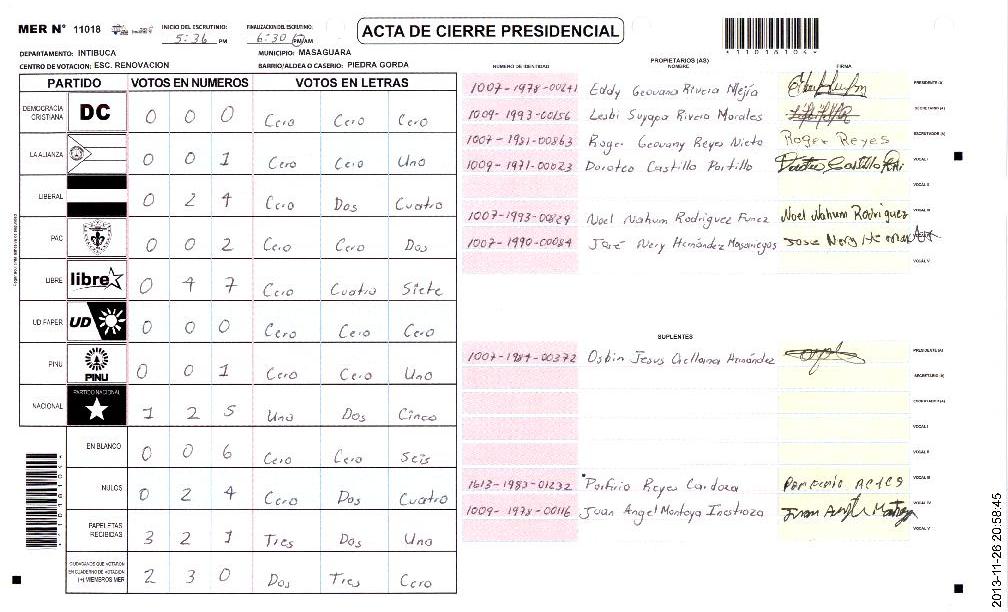 MER N° 11018
INICIO DEL ESCRUTINIO: 5:36 PM
FINALIZACION DEL ESCRUTINIO: 6:30 PM/AM
ACTA DE CIERRE PRESIDENCIAL
11018104
DEPARTAMENTO: INTIBUCA
MUNICIPIO: MASAGUARA
CENTRO DE VOTACION: ESC. RENOVACION
BARRIO/ALDEA O CASERIO: PIEDRA GORDA
PARTIDO VOTOS EN NUMEROS VOTOS EN LETRAS
DEMOCRACIA CRISTIANA DC 0 0 0 Cero Cero Cero
LA ALIANZA 0 0 1 Cero Cero Uno
LIBERAL 0 2 4 Cero Dos Cuatro
PAC 0 0 2 Cero Cero Dos
LIBRE libre 0 4 7 Cero Cuatro Siete
UD FAPER UD 0 0 0 Cero Cero Cero
PINU PINU 0 0 1 Cero Cero Uno
NACIONAL PARTIDO NACIONAL 1 2 5 Uno Dos Cinco
EN BLANCO 0 0 6 Cero Cero Seis
NULOS 0 2 4 Cero Dos Cuatro
PAPELETAS RECIBIDAS 3 2 1 Tres Dos Uno
CIUDADANOS QUE VOTARON EN CUADERNO DE VOTACION (+) MIEMBROS MER 2 3 0 Dos Tres Cero
PROPIETARIOS (AS)
NUMERO DE IDENTIDAD NOMBRE FIRMA
1007-1978-00241 Eddy Geovana Rivera Mejía PRESIDENTE (A)
1009-1993-00156 Lesbi Suyapa Rivera Morales SECRETARIO (A)
1007-1981-00863 Roger Geovany Reyes Nieto Roger Reyes ESCRUTADOR (A)
1009-1971-00023 Doroteo Castillo Portillo VOCAL I
VOCAL II
1007-1993-00829 Noel Nahum Rodriguez Funez Noel Nahum Rodriguez VOCAL III
1007-1990-00084 José Nery Hernández Jose Nery VOCAL IV
VOCAL V
SUPLENTES
1007-1984-00372 Osbin Jesus Orellana Hernández PRESIDENTE (A)
SECRETARIO (A)
ESCRUTADOR (A)
VOCAL I
VOCAL II
1613-1983-01232 Porfirio Reyes Cardoza VOCAL III
1009-1978-00116 Juan Angel Montoya Inestroza VOCAL IV
VOCAL V
2013-11-26 20:58:45